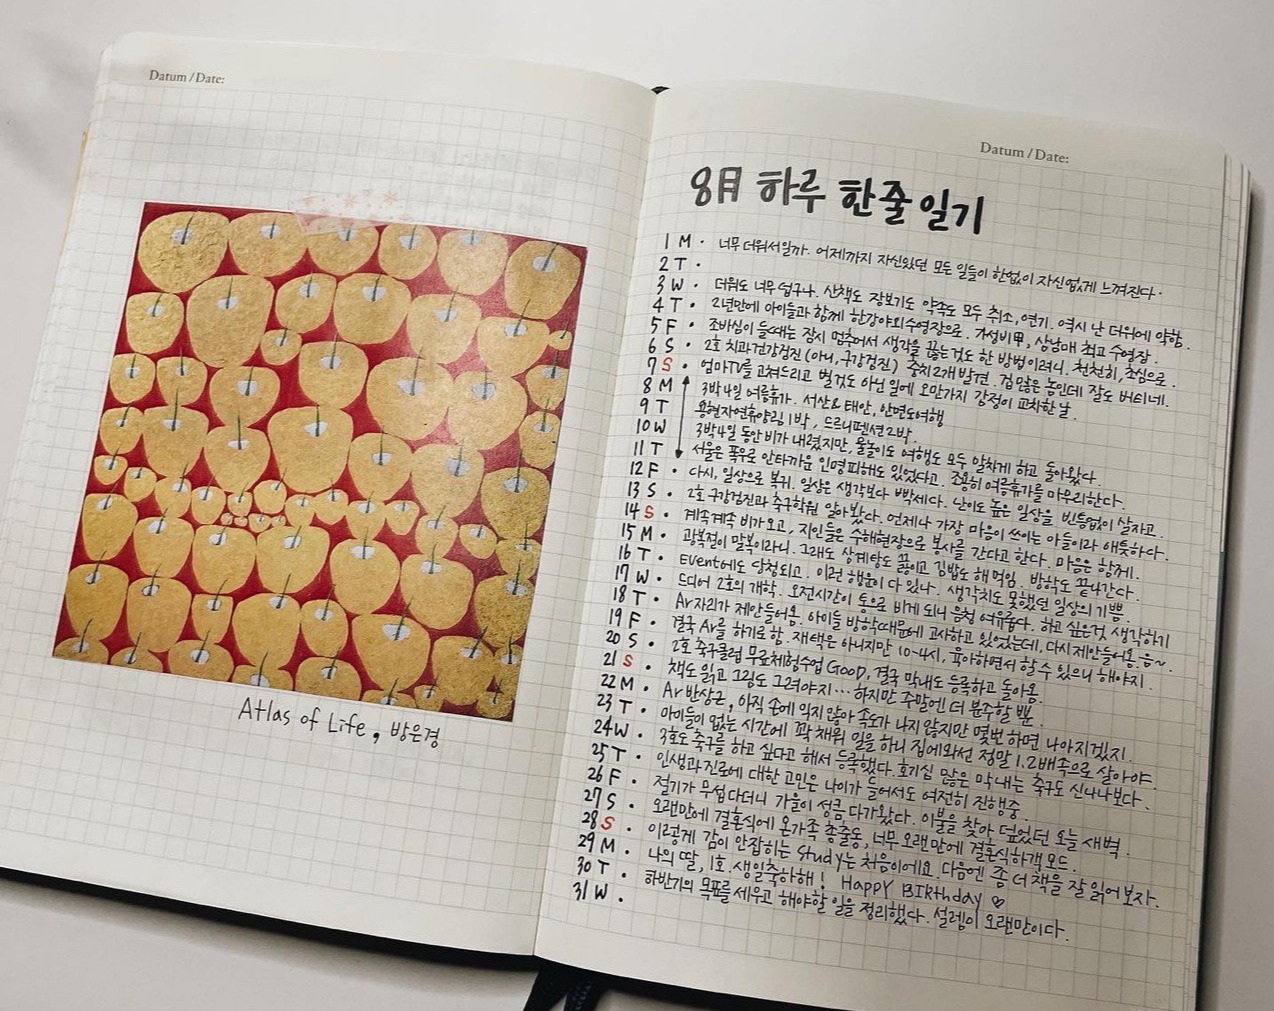 Datum / Date:
Atlas of Life, 방은경
Datum / Date:
8月 하루 한줄일기
1 M · 너무 더워서일까. 어제까지 자신있던 모든 일들이 한없이 자신없게 느껴진다.
2 T ·
3 W · 더워도 너무 덥구나. 산책도 장보기도 약속도 모두 취소, 연기. 역시 난 더위에 약함.
4 T · 2년만에 아이들과 함께 한강야외수영장으로. 가성비甲, 삼남매 최고 수영장.
5 F · 조바심이 들때는 잠시 멈추어서 생각을 끊는것도 한 방법이려니. 천천히, 초심으로.
6 S · 2호 치과건강검진 (아니, 구강검진) 충치2개발견. 겁많은 놈인데 잘도 버티네.
7 S · 엄마TV를 고쳐드리고 별것도 아닌 일에 오만가지 감정이 교차한 날.
8 M 3박4일 여름휴가. 서산&태안, 안면도여행
9 T 용현자연휴양림 1박, 드르니펜션2박.
10 W 3박4일 동안 비가 내렸지만, 물놀이도 여행도 모두 알차게 하고 돌아왔다.
11 T 서울은 폭우로 안타까운 인명피해도 있었다고. 조용히 여름휴가를 마무리한다.
12 F · 다시, 일상으로 복귀. 일상은 생각보다 빡세다. 난이도 높은 일상을 빈틈없이 살자고.
13 S · 2호 구강검진과 축구학원 알아봤다. 언제나 가장 마음이 쓰이는 아들이라 애틋하다.
14 S · 계속계속 비가오고, 지인들은 수해현장으로 봉사를 간다고 한다. 마음은 함께.
15 M · 광복절이 말복이라니. 그래도 삼계탕도 끓이고 김밥도 해먹임. 방학도 끝나간다.
16 T · Event에도 당첨되고. 이런 행운이 다 있나. 생각치도 못했던 일상의 기쁨.
17 W · 드디어 2호의 개학. 오전시간이 통으로 비게 되니 엄청 여유롭다. 하고 싶은것, 생각하기
18 T · Ar자리가 제안들어옴. 아이들 방학때문에 고사하고 있었는데, 다시 제안들어옴. 음~.
19 F · 결국 Ar를 하기로 함. 재택은 아니지만 10-4시, 육아하면서 할 수 있으니 해야지.
20 S · 2호 축구클럽 무료체험수업 GOOD, 결국 막내도 등록하고 돌아옴.
21 S · 책도 읽고 그림도 그려야지… 하지만 주말엔 더 분주할 뿐.
22 M · Ar 반상근, 아직 손에 익지 않아 속도가 나지 않지만 몇번 하면 나아지겠지.
23 T · 아이들이 없는 시간에 꽉 채워 일을 하니 집에와선 정말 1.2배속으로 살아야.
24 W · 3호도 축구를 하고 싶다고 해서 등록했다. 호기심 많은 막내는 축구도 신나나보다.
25 T · 인생과 진로에 대한 고민은 나이가 들어서도 여전히 진행중.
26 F · 절기가 무섭다더니 가을이 성큼 다가왔다. 이불을 찾아 덮었던 오늘 새벽
27 S · 오랜만에 결혼식에 온가족 총출동, 너무 오랜만에 결혼식하객모드.
28 S · 이렇게 감이 안잡히는 study는 처음이에요. 다음엔 좀 더 책을 잘 읽어보자.
29 M · 나의 딸, 1호. 생일축하해! HAPPY BIRthday ♡
30 T · 하반기의 목표를 세우고 해야할 일을 정리했다. 설렘이 오랜만이다.
31 W ·